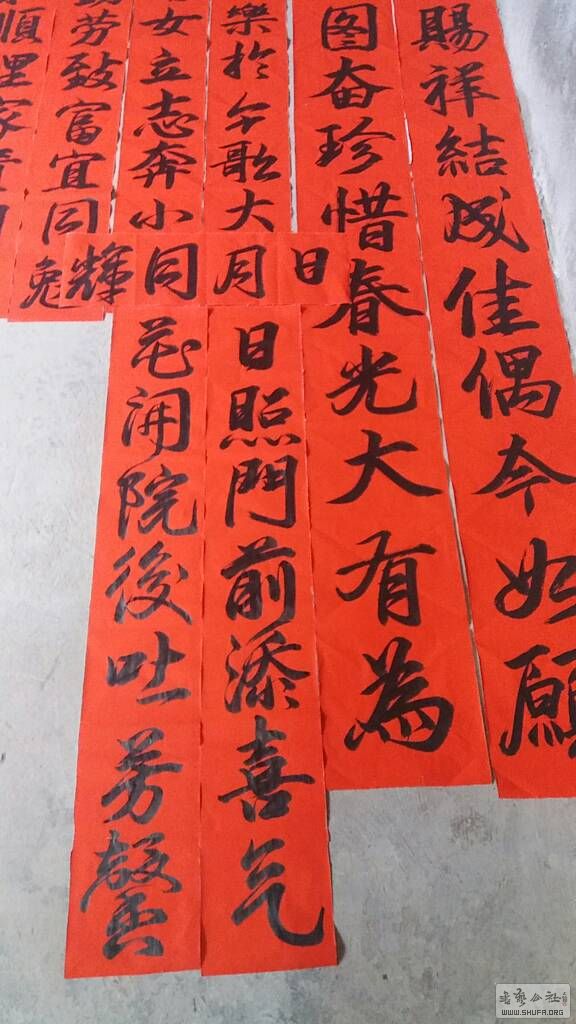 賜祥結成佳偶今如願
图奋珍惜春光大有為
樂於歌大
女立志奔小
劳致富宜同
順理家
日月同輝
日照門前添喜气
花開院後吐芳馨
WWW.SHUFA.ORG